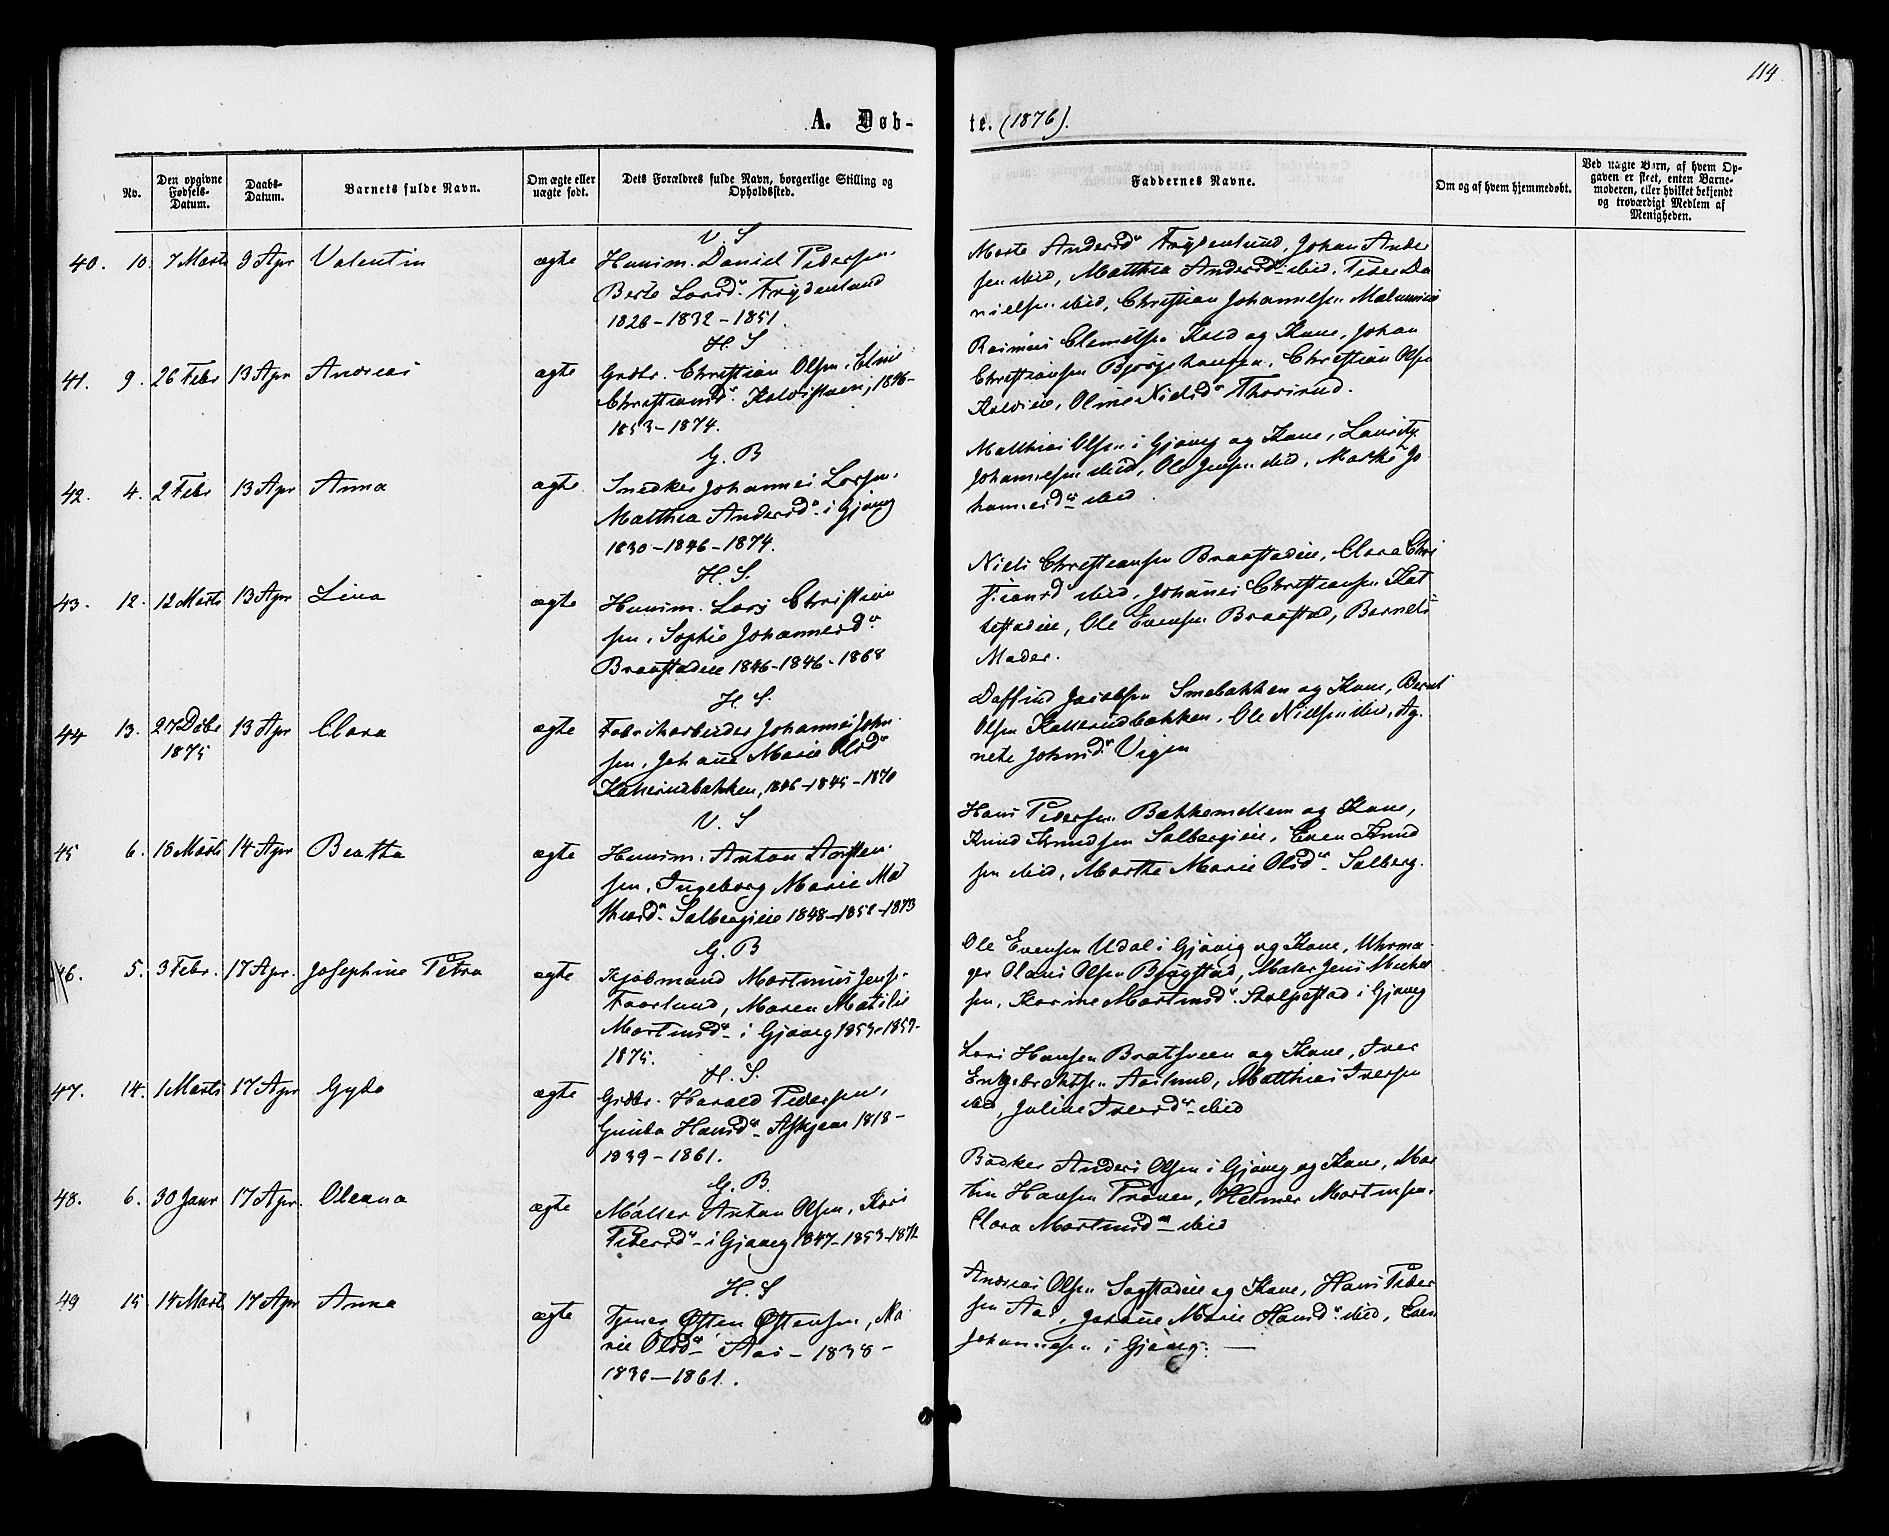 114
A. Døb-
te. (1876).
No.
Den opgivne Fødsels-Datum.
Daabs-Datum.
Barnets fulde Navn.
Om ægte eller uægte født.
Dets Forældres fulde Navn, borgerlige Stilling og Opholdssted.
Faddernes Navne.
Om og af hvem hjemmedøbt.
Ved uægte Børn, af hvem Op-
gaven er skeet, enten Barne-
moderen, eller hvilket bekjendt
og troværdigt Medlem af
Menigheden.
V. S
40. 10. 7 Marts 9 Apr Valentin ægte Huusm. Daniel Pedersen,
Berte Larsd. Frydenlund
1826-1832-1851.
Marte Andersd. Frydenlund, Johan Ander
sen ibid, Matthea Andersd. ibid, Peder Da
nielsen ibid, Christian Johannessen
H. S
41. 9. 26 Febr 13 Apr Andreas ægte Grdbr. Christian Olsen,
Christiansd. 1846-
1853-1874.
Rasmus og Kone, Johan
Christiansen Christian Olsen
Nielsd. Thorsrud.
G. B
42. 4. 2 Febr 13 Apr Anna ægte Snedker Johannes Larsen,
Matthea Andersd. i Gjøvig
1830-1846-1874.
Matthias Olsen i Gjøvig og Kone, Lauritz
Johannessen ibid, Ole Jensen ibid, Marthe Jo
hannesd. ibid.
H. S.
43. 12. 12 Marts 13 Apr Lina ægte Huusm. Lars Christian
sen, Sophie Johannesd.
Braastadeie 1846-1846-1868
Niels Christiansen Braastadeie, Clara Chri
stiansd ibid, Johanes Christiansen Kal
lestadeie, Ole Evensen Braastad, Barnets
Moder.
H. S.
44 13. 27 Dcbr 1875 13 Apr Clara ægte Fabrikarbeider Johannes John
sen, Johanne Marie Olsd.
Kallerudbakken, 1846-1845-1870
Daffind Jacobsen Smebakken og Kone, Bernt
Olsen Kallerudbakken, Ole Nielsen ibid, Ag
nete Johnsd. Vigen
V. S
45 6. 18 Marts 14 Apr Beatha ægte Huusm. Anton
sen, Ingeborg Marie Mat
Solbergeie 1848-1852-1873
Hans Pedersen Bakkemellem og Kone,
Knud Knudsen Solbergeie, Even Knud
sen ibid, Marthe Marie Olsd. Solberg.
G. B
46. 5. 3 Febr. 17 Apr. Josephine Petra ægte Kjøbmand Martinus Jens.
Faarlund, Maren Matilie
Martinsd. i Gjøvig 1853-1853-
1875.
Ole Evensen Udal i Gjøvig og Kone, Uhrma-
ger Olaus Olsen Maler Jens Mickel
sen, Karine Martinsd. Stolpestad i Gjøvig
H. S.
47. 14. 1 Marts 17 Apr Gyda ægte Grdbr. Harald Pedersen,
Hansd. Askjær 1818-
1839-1861.
Lars Hansen Bratsveen og Kone, Iver
Engebretsen Aaslund, Matthias Iversen
ibid, Juline Iversd. ibid
G. B.
48. 6. 30 Janr 17 Apr. Oleana ægte Møller Anton Olsen, Kari
Pedersd. i Gjøvig 1847-1853-1872
Bødker Anders Olsen i Gjøvig og Kone, Mar
tin Hansen Prøven, Helmer Martinsen,
Clara Martinsd. ibid
H. S
49 15 14 Marts 17 Apr Anna ægte Tjener Østen Østensen, Ma
rie Olsd. Aas - 1838-
1836-1861.
Andreas Olsen Sogstadeie og Kone, Hans Peder
sen Aas, Marie Hansd. ibid, Even
Johannesen i Gjøvig.